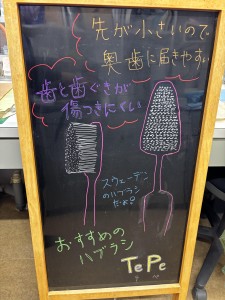 先が小さいので
奥歯に届きやすい
歯と歯ぐきが
傷つきにくい
スウェーデン
のハブラシ
だよ?
おすすめの
ハブラシ
TePe